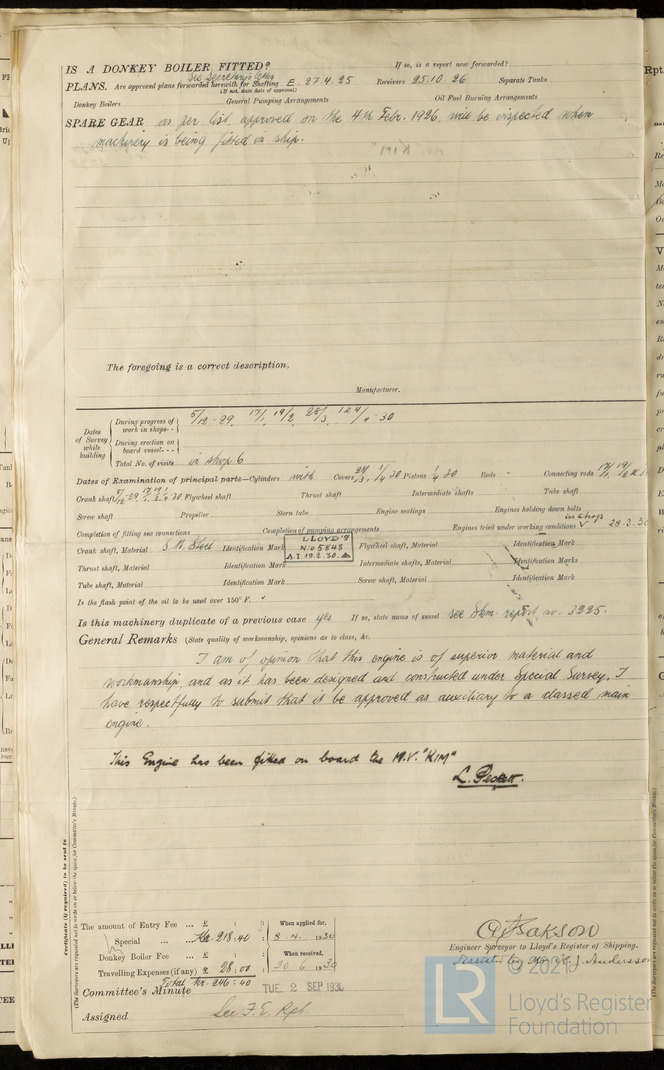 IS A DONKEY BOILER FITTED? If so, is a report now forwarded?
see Secretary's letter
PLANS. Are approved plans forwarded herewith for Shafting E. 27.4.25 Receivers 25.10.26 Separate Tanks
(If not, state date of approval)
Donkey Boilers General Pumping Arrangements Oil Fuel Burning Arrangements
SPARE GEAR as per list approved on the 4th Febr. 1926, will be inspected when
machinery is being fitted in ship.
The foregoing is a correct description,
Manufacturer.
Dates of Survey while building
During progress of work in shops - - 5/12-29 17/1 19/2 28/3 30
During erection on board vessel - - -
Total No. of visits in shop 6
Dates of Examination of principal parts—Cylinders Covers Pistons Rods " Connecting rods
Crank shaft Flywheel shaft Thrust shaft Intermediate shafts Tube shaft
Screw shaft Propeller Stern tube Engine seatings Engines holding down bolts
Completion of fitting sea connections Completion of pumping arrangements Engines tried under working conditions in shop 28.3.30
Crank shaft, Material S.M. Steel Identification Mark LLOYD'S No 5848 A.I. 19.2.30. Flywheel shaft, Material Identification Mark
Thrust shaft, Material Identification Mark Intermediate shafts, Material Identification Marks
Tube shaft, Material Identification Mark Screw shaft, Material Identification Mark
Is the flash point of the oil to be used over 150° F. "
Is this machinery duplicate of a previous case yes If so, state name of vessel see Skm. report no. 3225.
General Remarks (State quality of workmanship, opinions as to class, &c.
I am of opinion that this engine is of superior material and
workmanship, and as it has been designed and constructed under Special Survey, I
have respectfully to submit that it be approved as auxiliary to a classed main
engine.
This Engine has been fitted on board the M.V. "KIM"
Certificate (if required) to be sent to
(The Surveyors are requested not to write on or below the space for Committee's Minute.)
The amount of Entry Fee ... £ : : When applied for,
Special ... Kr. 218:40 : 8 4. 1930
Donkey Boiler Fee ... £ : : When received,
Travelling Expenses (if any) £ 28:00 : 30 6 1930
Total kr. 246:40
Engineer Surveyor to Lloyd's Register of Shipping.
Committee's Minute TUE 2 SEP 1930
Assigned See F.E. Rpt
© 2021
LR Lloyd's Register
Foundation